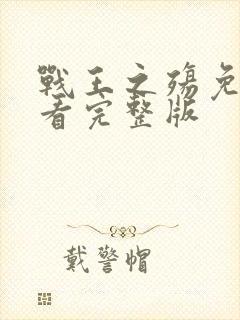 戰王之殤免
看完整版
戴警帽